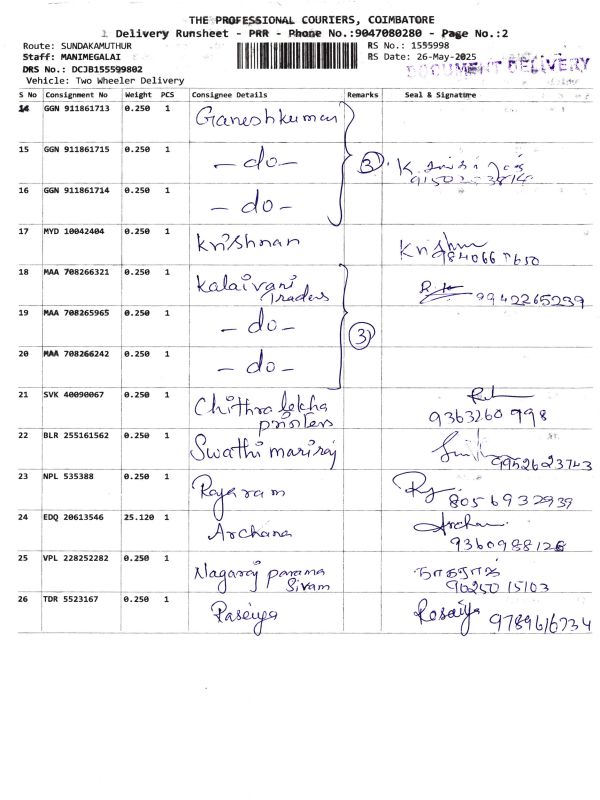 THE PROFESSIONAL COURIERS, COIMBATORE
Delivery Runsheet - PRR - Phone No.:9047080280 - Page No.:2
Route: SUNDAKAMUTHUR RS No.: 1555998
Staff: MANIMEGALAI RS Date: 26-May-2025
DOCUMENT DELIVERY
DRS No.: DCJB155599802
Vehicle: Two Wheeler Delivery
S No Consignment No Weight PCS Consignee Details Remarks Seal & Signature
14 GGN 911861713 0.250 1 Ganeshkumar
15 GGN 911861715 0.250 1 -do- 3
16 GGN 911861714 0.250 1 -do-
17 MYD 10042404 0.250 1 Krishnan Krishn
18 MAA 708266321 0.250 1 Kalaivani Traders 9942265239
19 MAA 708265965 0.250 1 -do- 3
20 MAA 708266242 0.250 1 -do-
21 SVK 40090067 0.250 1 Chithralekha printers 9363260998
22 BLR 255161562 0.250 1 Swathi mariraj 9952623743
23 NPL 535388 0.250 1 Rajaram 8056932939
24 EDQ 20613546 25.120 1 Archana Archana
9360988128
25 VPL 228252282 0.250 1 Nagaraj parama Sivam நாகராஜ்
9025015103
26 TDR 5523167 0.250 1 Raseiya Rosaiya 9789616734